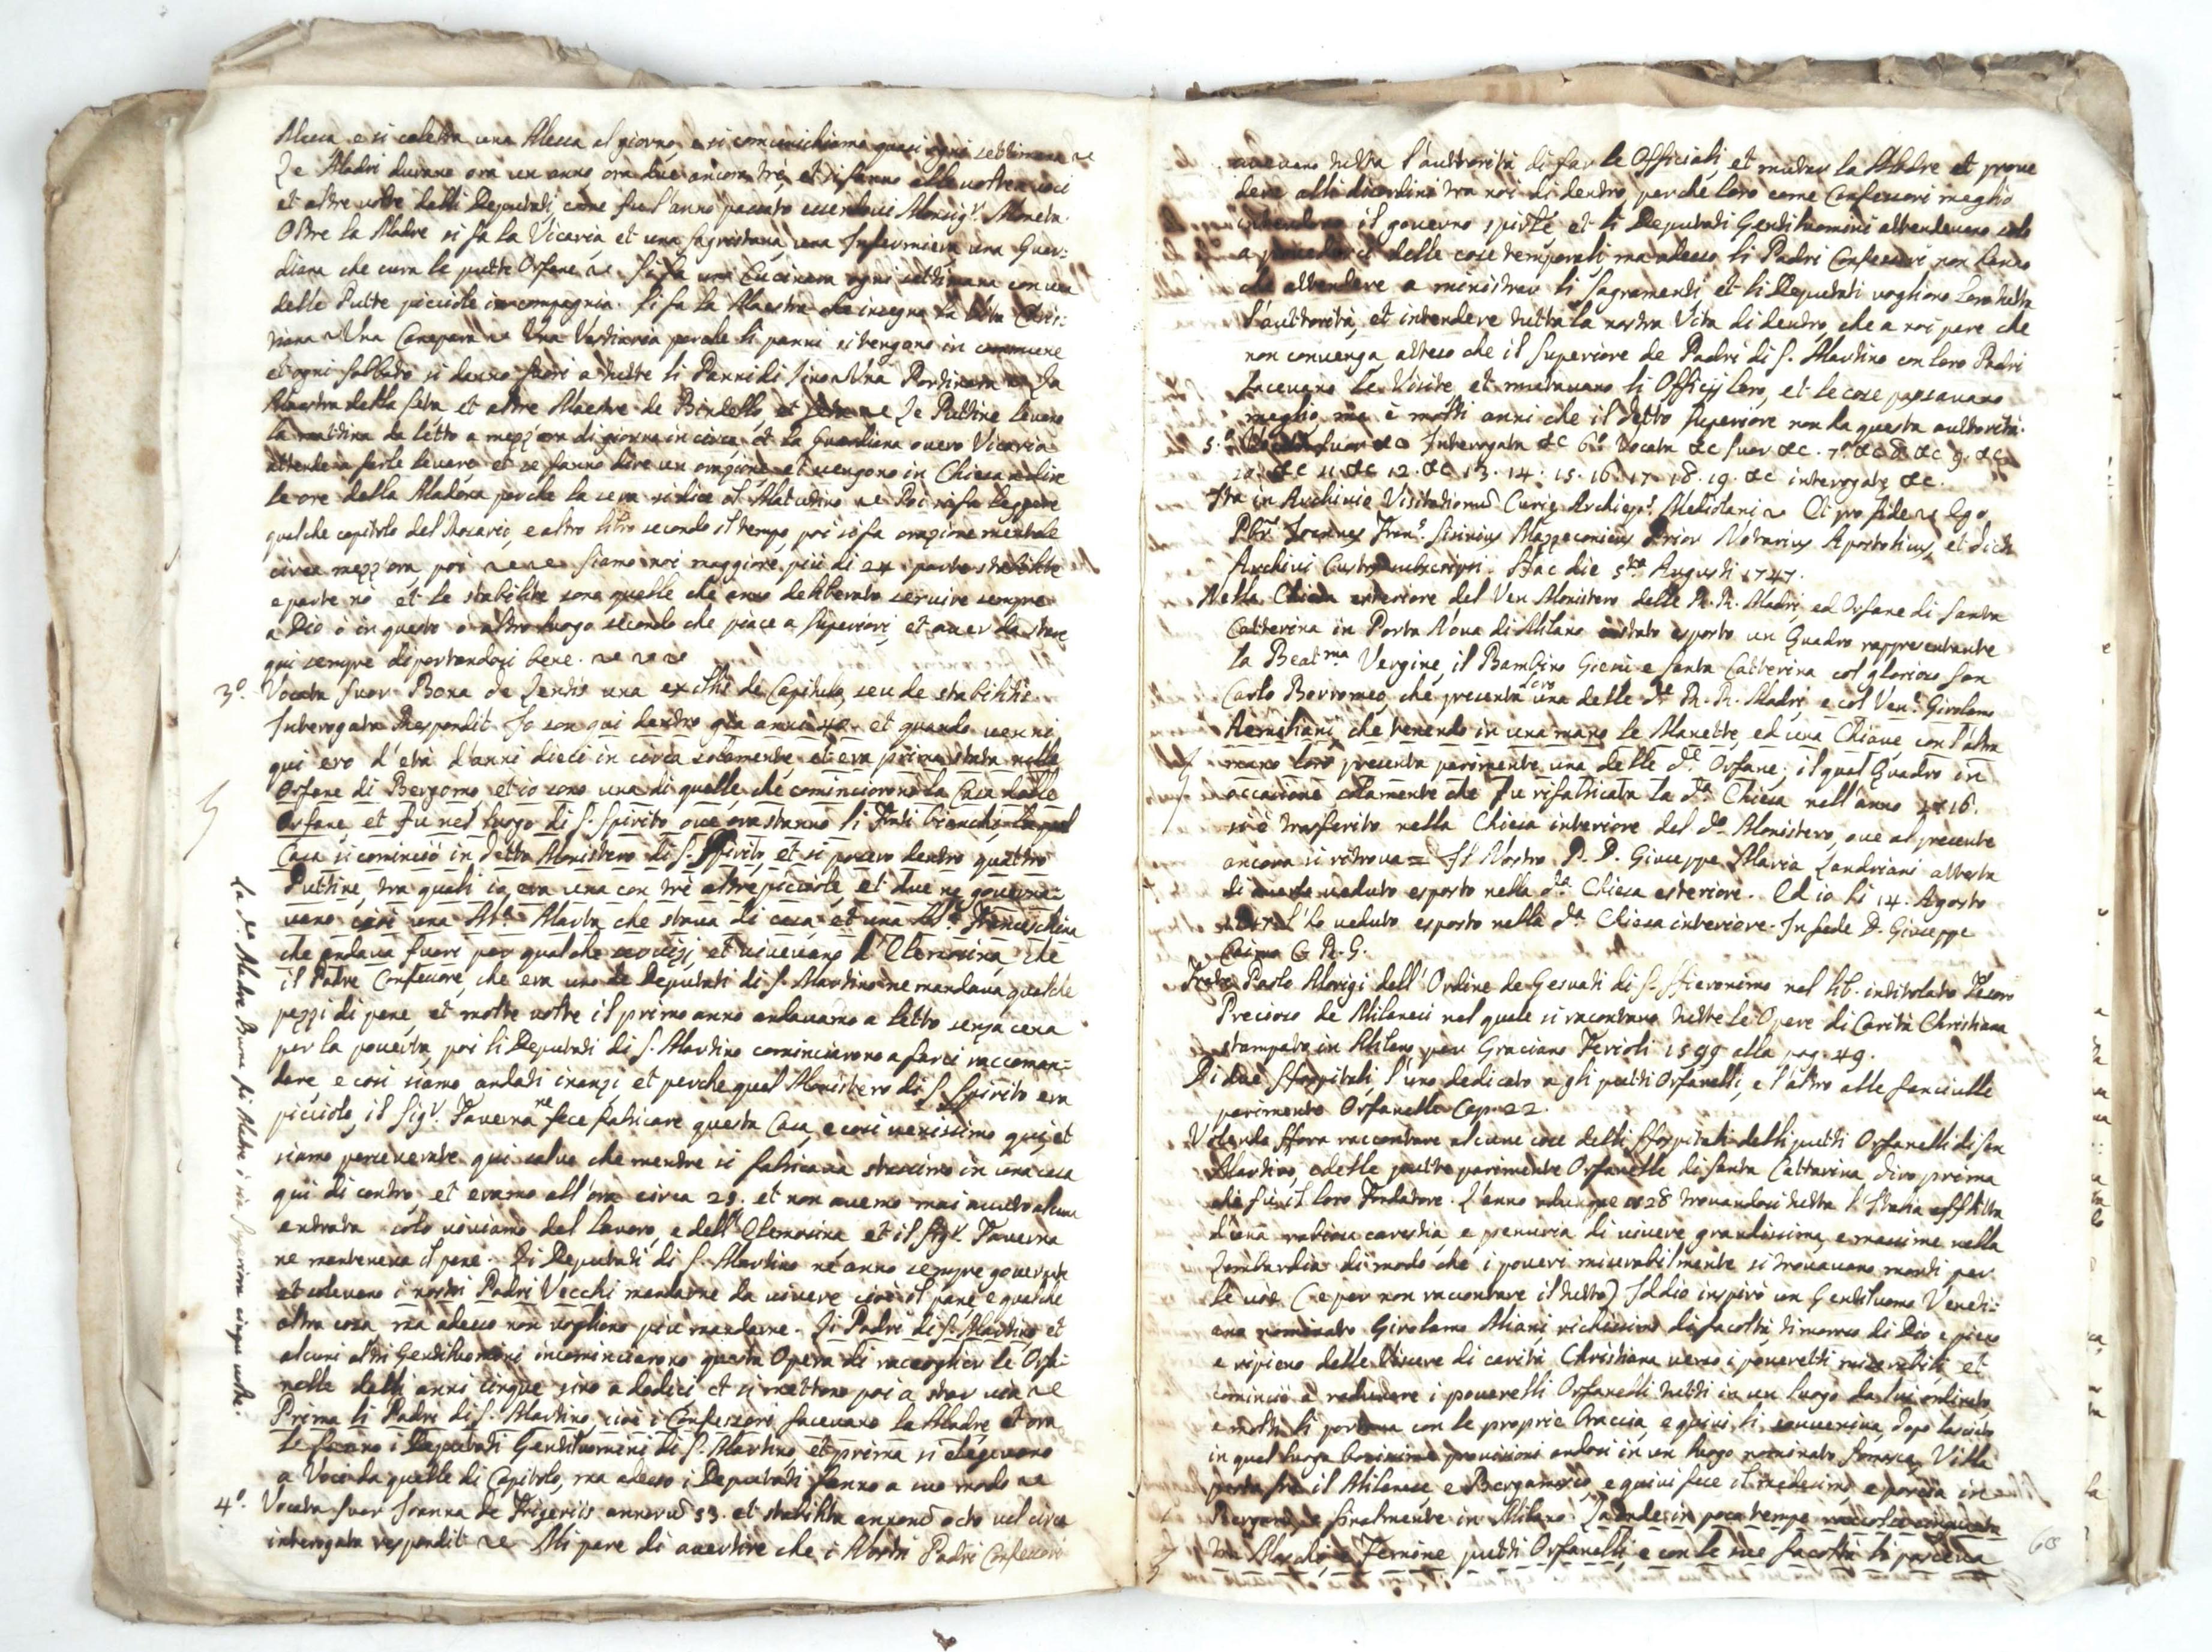 Messa e si celebra una Messa al giorno, e si comunichiamo quasi ogni settimana ~
Le Madri durano ora un anno ora due ancora trè, et si fanno alle nostre voci
et altre volte dalli Deputati, come fu l'anno passato essendovi Monsig.r Moneta.
Oltre la Madre si fa la Vicaria, et una Sagrestana, una Infermiera, una Guar:
diana che cura le putte Orfane ~ Si fa una Cucinara ogni settimana con una
delle Putte picciole in compagnia. Si fa la Maestra che insegna la Vita Chris:
tiana ~ Una Canepara ~ Una Vestiaria perche li panni si tengano in commune
et ogni Sabbato si danno fuori a tutte li Panni di lino ~ Una Portinara ~ La
Maestra della seta et altre Maestre de Bindello, et seta ~ Le Puttine levano
la mattina da letto a mezz'ora di giorno in circa, et la Guardiana overo Vicaria
attende a farle levare et se fanno dire un orazione, et vengono in Chiesa a dire
le ore della Madona perche la sera si dice il Matutino ~ Poi si fa leggere
qualche capitolo del Rosario, e altro libro secondo il tempo, poi si fa orazione mentale
circa mezz'ora poi ~ ~ ~ Siamo noi maggiore più di 24 parte stabilite
e parte nò et le stabilite sono quelle che anno deliberato servire sempre
a Dio ò in questo ò altro luogo secondo che piace a Superiori, et aver da stare
qui sempre diportandosi bene. ~ ~ ~
3.o Vocata Suor Bona de Lentis una ex illis de Capitulo, seu de stabilitis
Interrogata Respondit Io son qui dentro già anni 40. et quando venni
qui ero d'età d'anni dieci in circa solamente, et era prima stata nelle
Orfane di Bergomo, et io sono una di quelle, che cominciorono la Casa delle
Orfane, et fu nel luogo di S. Spirito, ove ora stanno li Frati bianchi, la qual
Casa si cominciò in detto Monistero di S. Spirito, et si posero dentro quattro
Puttine, tra quali io era una con trè altre picciole, et due ne governa:
vano cioè una M.a Marta che stava di casa, et una M.a Franceschina
che andava fuori per qualche servizj, et vivevano d'Elemosina, che
il Padre Confessore, che era uno de Deputati di S. Martino ne mandava qualche
pezzi di pane, et molte volte il primo anno andavamo a letto senza cena
per la povertà, poi li Deputati di S. Martino cominciarono a farci raccoman:
dare e così siamo andati inanzi, et perche quel Monistero di S. Spirito era
picciolo, il Sig.r Taverna ne fece fabricare questa Casa, e così venissimo qui, et
siamo perseverate qui salvo che mentre si fabricava stassimo in una casa
qui di contro, et eramo all'ora circa 29. et non avemo mai avuto alcuna
entrata solo viviamo del lavoro, e dell'Elemosina et il Sig.r Taverna
ne manteneva il pane. Li Deputati di S. Martino ne anno sempre governate
et solevano i nostri Padri Vecchi mandarne da vivere cioè il pane e qualche
altra cosa ma adesso non vogliono più mandarne. Li Padri di S. Martino, et
alcuni altri Gentiluomini incominciarono questa Opera di raccoglier le Orfa:
nelle dalli anni cinque sino a dodici et si mettono poi a star via ~
Prima li Padri di S. Martino, cioè i Confessori facevano la Madre et ora
le fanno i Deputati Gentiluomini di S. Martino, et prima si elegevano
a Voci da quelle di Capitolo, ma adesso i Deputati fanno a suo modo ~
4.o Vocata Suor Joanna de Frigeriis annorũ 53. et stabilita annorũ octo vel circa
interrogata respondit ~ Mi pare di avertire che i Nostri Padri Confessori
La d.a Madre Bona fu Madre ò sia Superiora cinque volte.
avevano tutta l'auttorità di far le Officiali, et mutar la Madre et prove
dere alli disordini tra noi di dentro, perche loro come Confessori meglio
intendono il governo spir.le et li Deputati Gentiluomini attendevano solo
a provederci delle cose temporali ma adesso li Padri Confessori non hanno
che attendere a ministrar li Sagramenti et li Deputati vogliono loro tutta
l'auttorità, et intendere tutta la nostra Vita di dentro, che a noi pare che
non convenga atteso che il Superiore de Padri di S. Martino con loro Padri
facevano le Visite, et mutavano li Officij loro, et le cose passavano
meglio, ma è molti anni che il detto Superiore non ha questa auttorità.
5.o Suor &c Interrogata &c 6.o Vocata &c Suor &c. 7.o &c 8 &c 9. &c
10. &c 11 &c 12. &c 13. 14. 15. 16. 17. 18. 19. &c interrogate &c.
Ita in Archivio Visitationũ Curie Archiep.s Mediolani ~ Et pro fide ~ Ego
Pbr Joannes Fran.s Sirinius Mazzconius Prior Notarius Apostolicus, et dicti
Archivi Custos subscripsi. Hac die 5.ta Augusti 1747.
Nella Chiesa esteriore del Ven Monistero delle R. R. Madri, ed Orfane di Santa
Catterina in Porta Nova di Milano è stato esposto un Quadro rappresentante
la Beat.ma Vergine, il Bambino Giesù e Santa Catterina col glorioso San
Carlo Borromeo, che presenta loro una delle d.e R. R. Madri, e col Ven.e Girolamo
Aemiliani, che tenendo in una mano le Manette, ed una Chiave con l'altra
mano loro presenta parimente una delle d.e Orfane; il qual Quadro in
occasione solamente che fu rifabricata la d.a Chiesa nell'anno 1716.
si è trasferito nella Chiesa interiore del d.o Monistero, ove al presente
ancora si ritrova = Il Nostro P. D. Giuseppe Maria Landriani attesta
di averlo veduto esposto nella d.a Chiesa esteriore. Ed io li 14. Agosto
1747 l'ho veduto esposto nella d.a Chiesa interiore. In fede D. Giuseppe
Caimo C. R. S.
Frate Paolo Morigi dell'Ordine de Gesuati di S. Hieronimo nel lib. intitolato Tesoro
Precioso de Milanesi nel quale si racontano tutte le Opere di Carità Christiana
stampato in Milano per Graciano Ferioli 1599 alla pag. 49.
Di due Hospitali, l'uno dedicato a gli putti Orfanelli, e l'altro alle fanciulle
parimente Orfanelle Cap. 22.
Volendo Hora raccontare alcune cose delli Hospitali delli putti Orfanelli di San
Martino, e delle putte parimente Orfanelle di Santa Cattarina dirò prima
chi fu il loro Fondatore. L'anno adunque 1528 trovandosi tutta l'Italia afflitta
d'una rabiosa carestia, e penuria di vivere grandissima, e massime nella
Lombardia di modo che i poveri miserabilmente si trovavano morti per
le vie (e per non raccontare il tutto) Iddio inspirò un Gentiluomo Veneti:
ano nominato Girolamo Miani richissimo di facoltà timoroso di Dio e pieno
e ripieno delle Viscere di carità Christiana verso i poveretti miserabili, et
cominciò a radunare i poverelli Orfanelli tutti in un luogo da lui ordinato
e molti li portava con le proprie braccia, e quivi li sovveniva, dopo lasciato
in quel luogo bonissime provisioni andosi in un luogo nominato Somasca, Villa
posta fra il Milanese e Bergamasco, e quivi fece il medesimo, e poscia in
Bergamo, e finalmente in Milano. La onde in poco tempo
tra Maschi, e Femine putti Orfanelli, e con le sue facoltà li pasceva
60